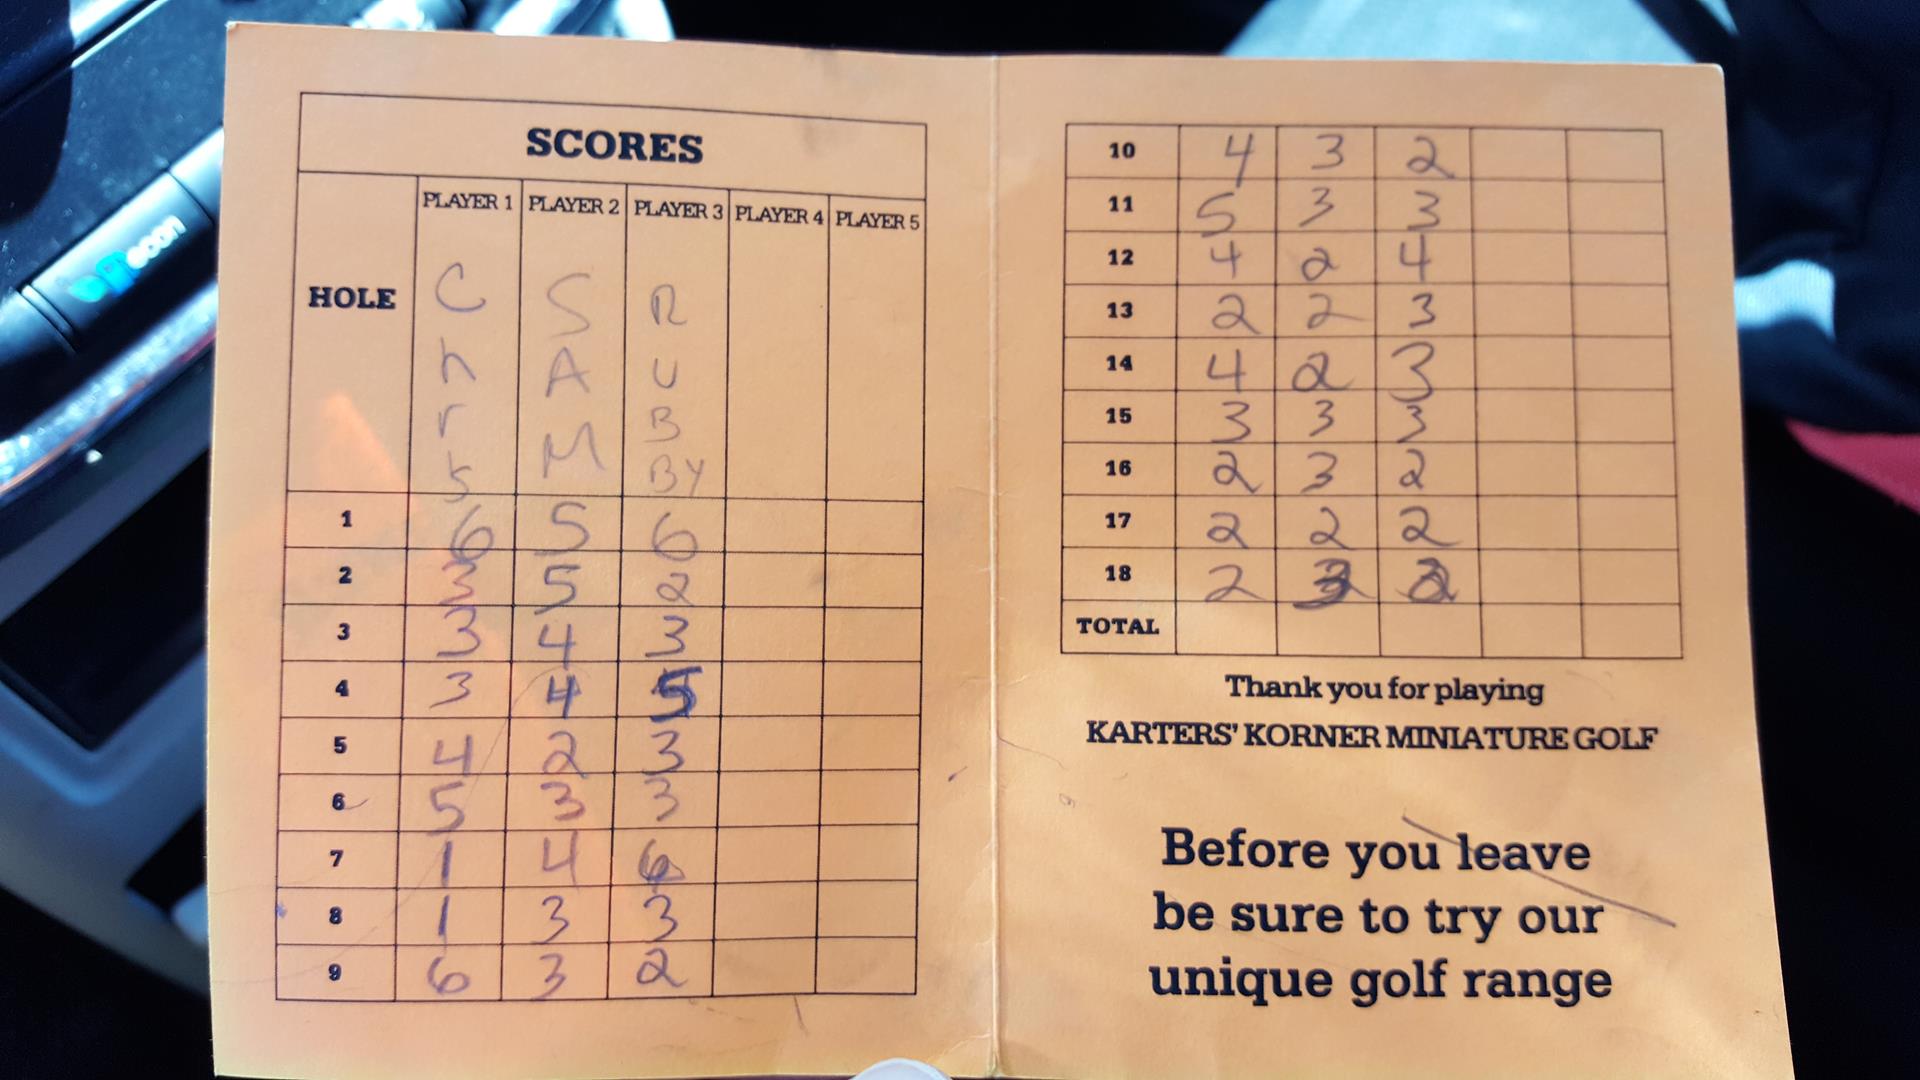 SCORES
HOLE PLAYER 1 PLAYER 2 PLAYER 3 PLAYER 4 PLAYER 5
C S R
h A U
r M B
BY
1 6 5 6
2 3 5 2
3 3 4 3
4 3 4 5
5 4 2 3
6 5 3 3
7 1 4
8 1 3 3
9 6 3 2
10 4 3 2
11 5 3 3
12 4 2 4
13 2 2 3
14 4 2 3
15 3 3 3
16 2 3 2
17 2 2 2
18 2
TOTAL
Thank you for playing
KARTERS' KORNER MINIATURE GOLF
Before you leave
be sure to try our
unique golf range